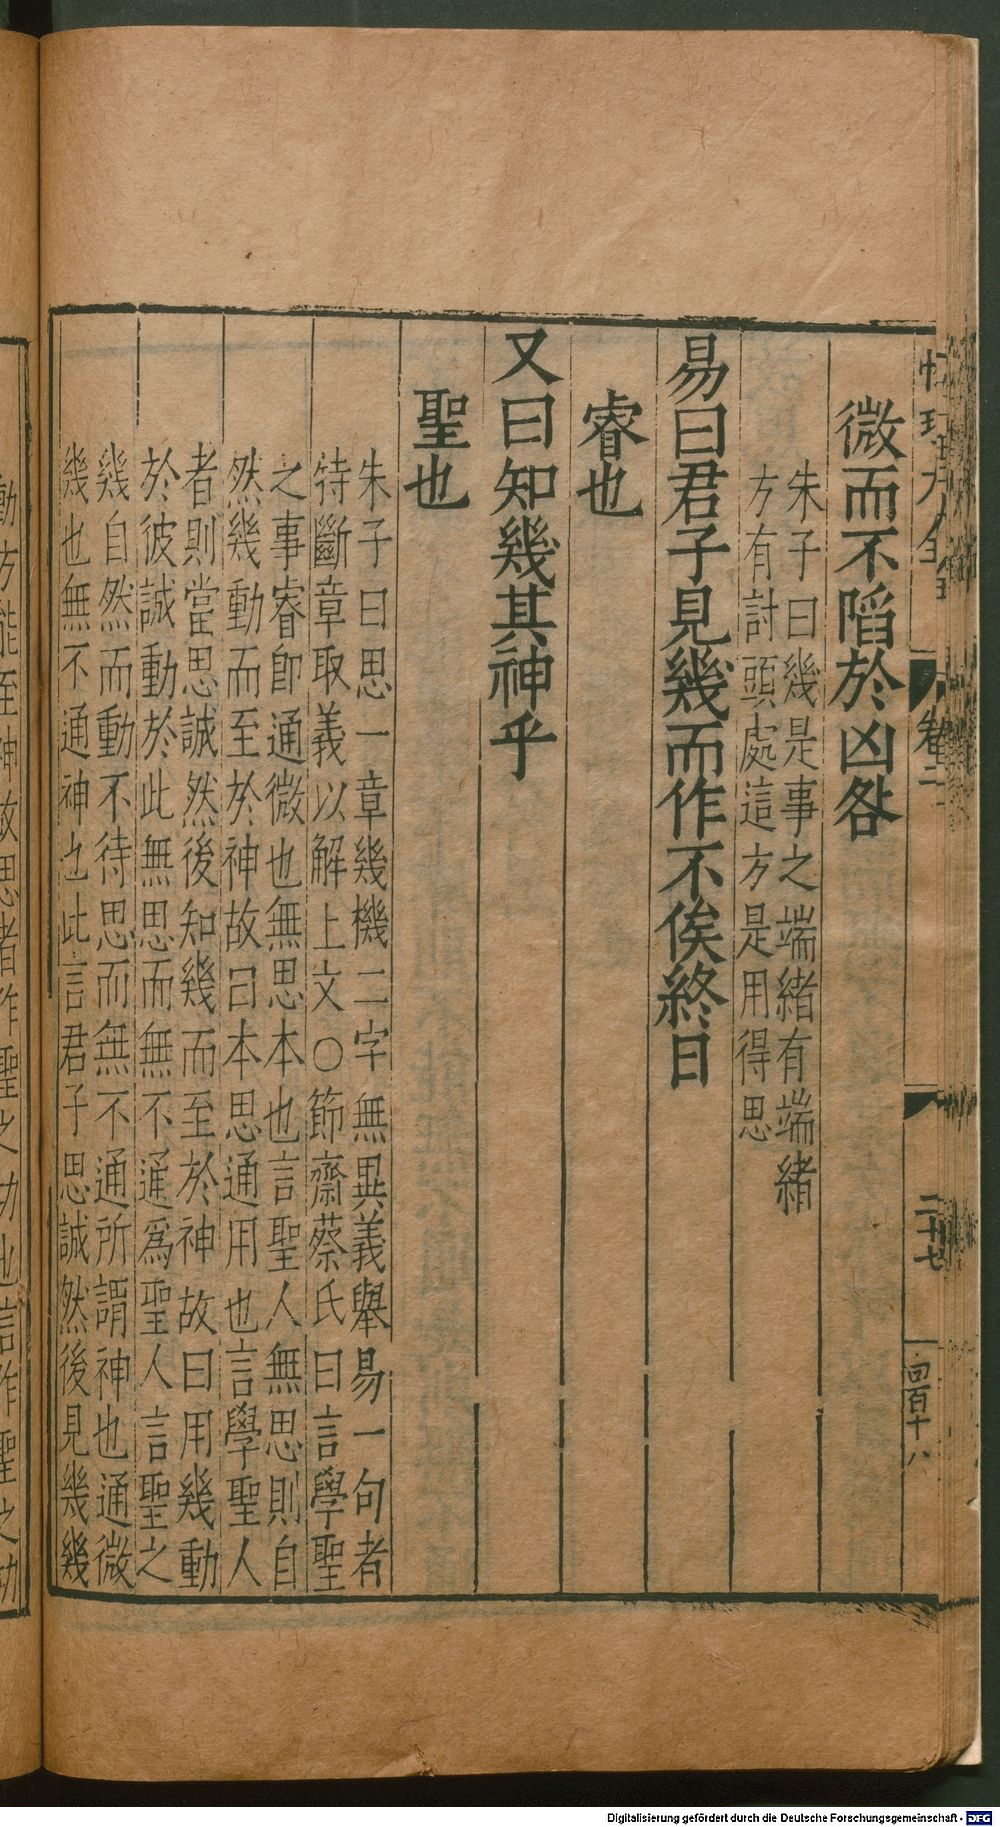 微而不陷於凶咎
朱子曰幾是事之端緒有端緒
方有討頭處這方是用得思
易曰君子見幾而作不俟終日
睿也
又曰知幾其神乎
聖也
朱子曰思一章幾機二字無異義舉易一句者
特斷章取義以解上文○節齋蔡氏曰言學聖
之事睿即通微也無思本也言聖人無思則自
然幾動而至於神故曰本思通用也言學聖人
者則當思誠然後知幾而至於神故曰用幾動
於彼誠動於此無思而無不通為聖人言聖之
幾自然而動不待思而無不通所謂神也通微
幾也無不通神也此言君子思誠然後見幾幾
動方能至神故思者作聖之功也言作聖之功
卷二
二十七
四百十八
Digitalisierung gefördert durch die Deutsche Forschungsgemeinschaft - DFG